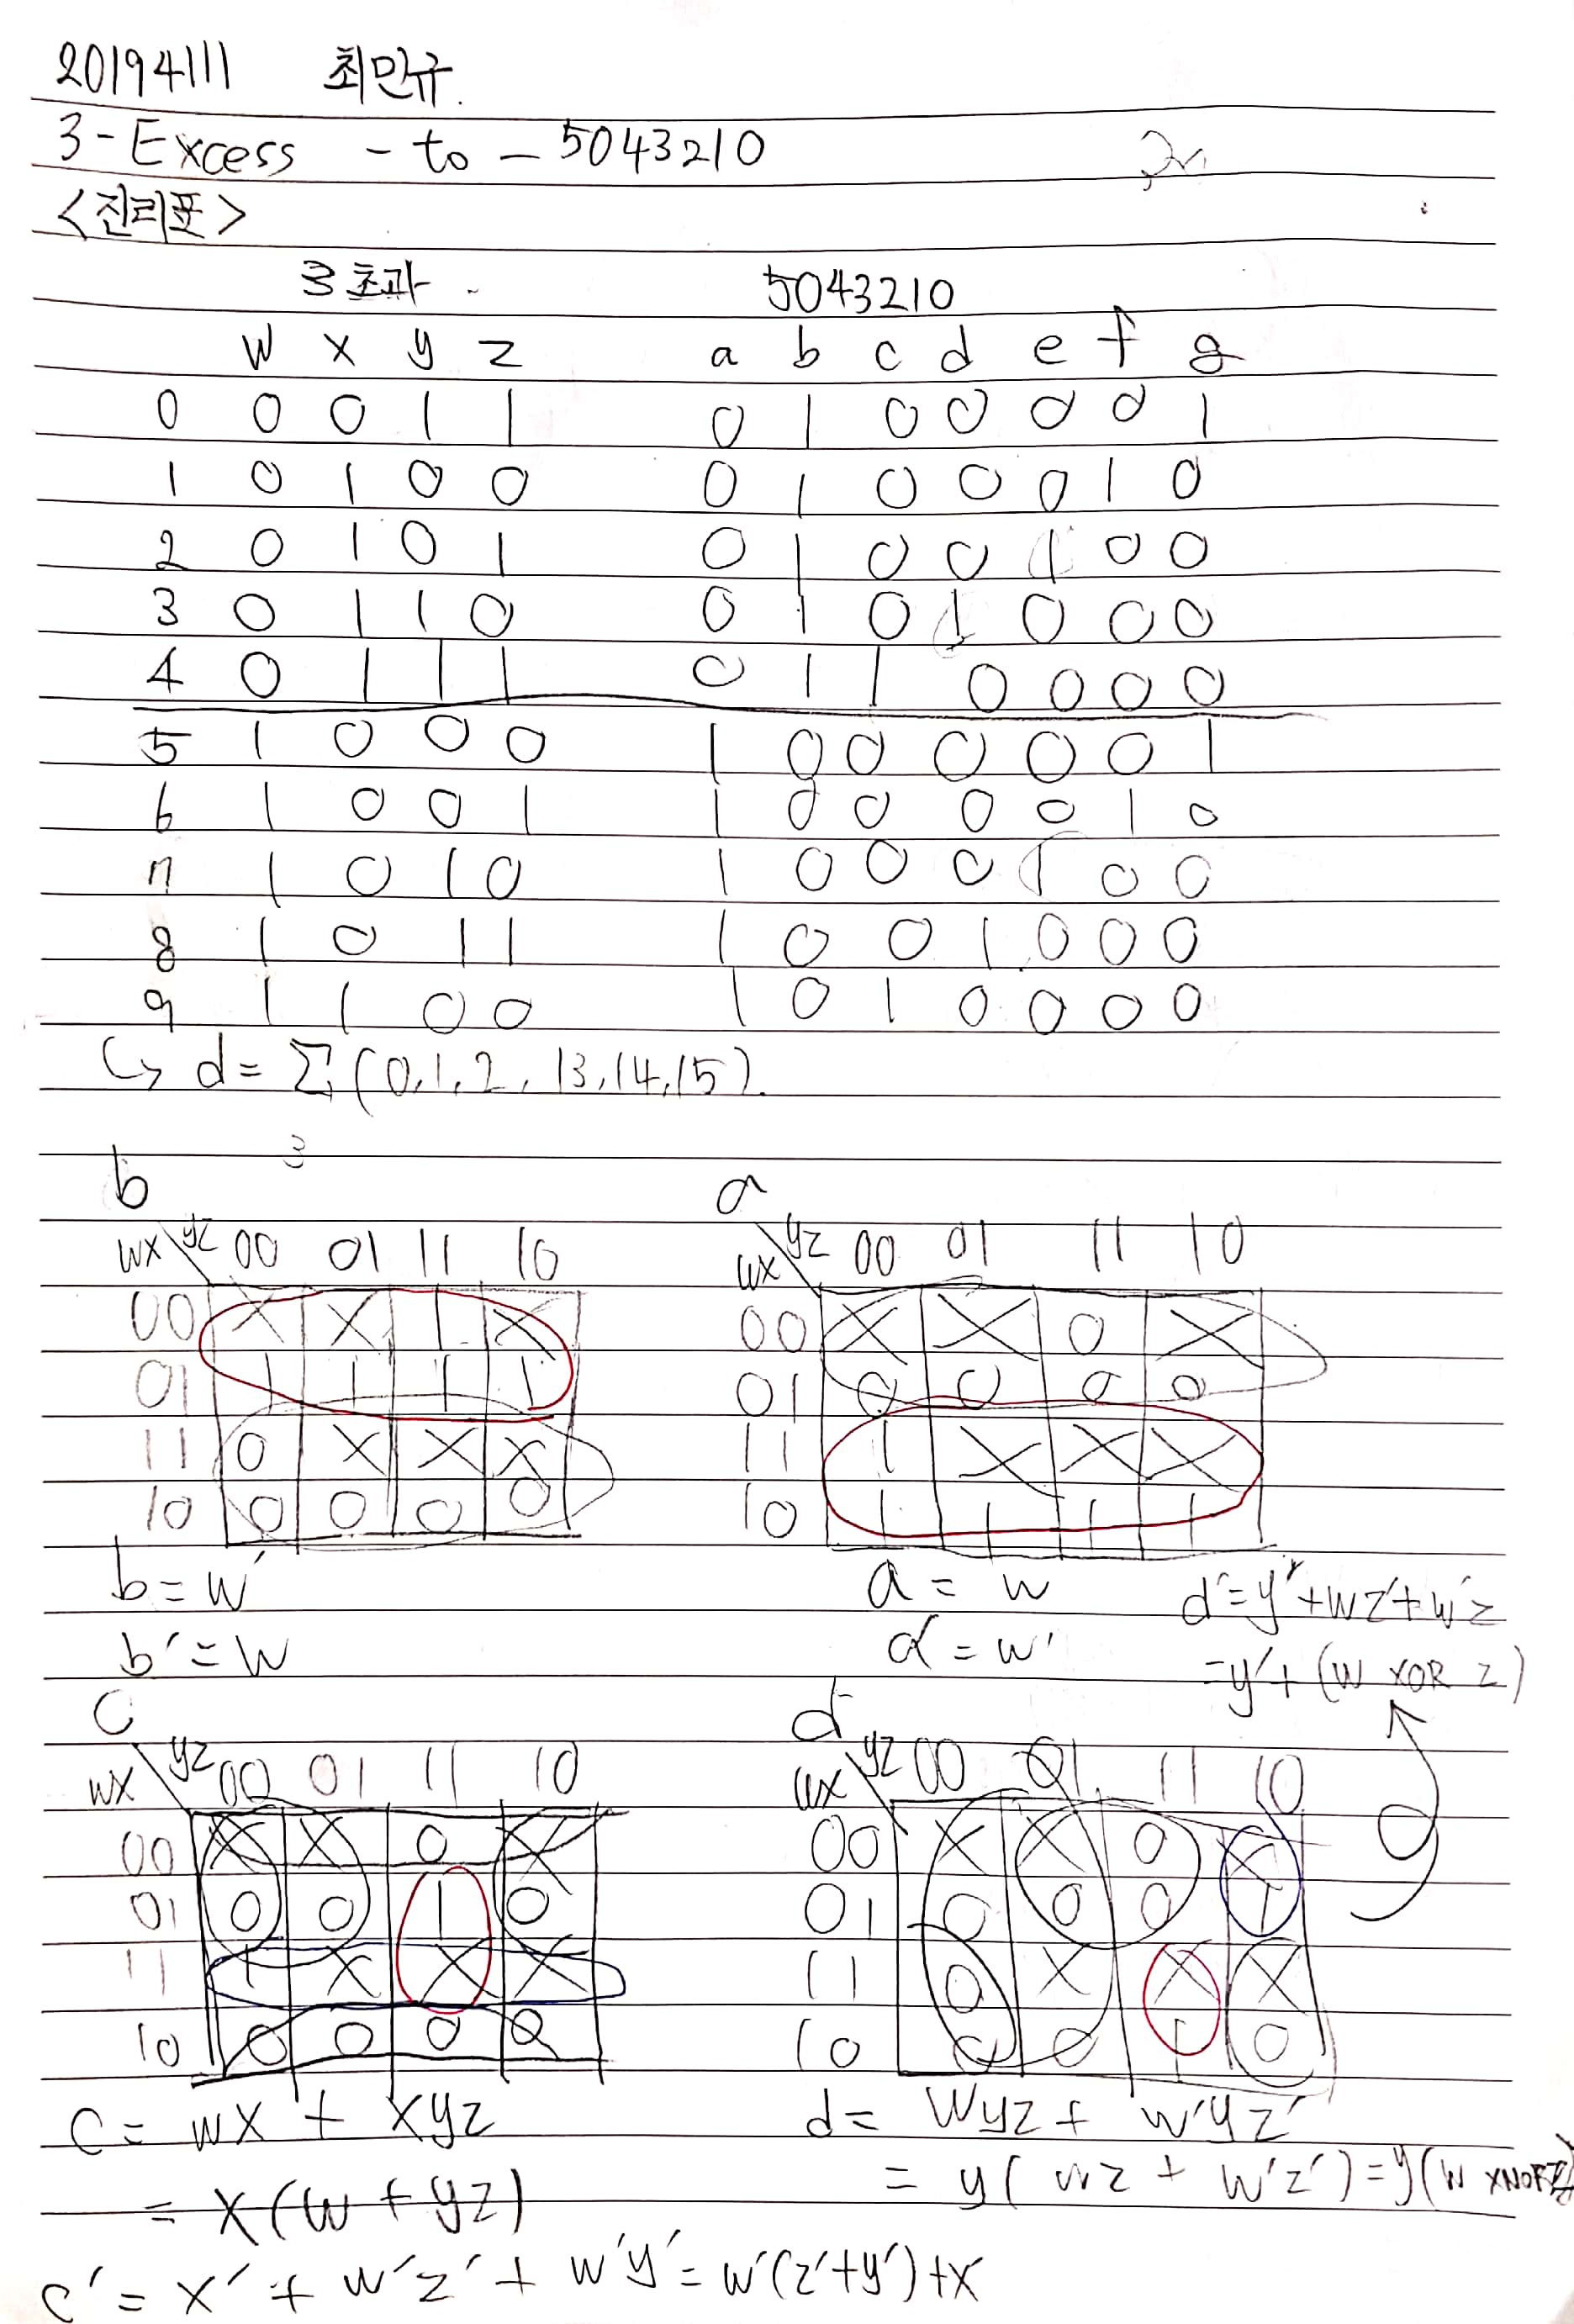 20194111 최민규.
3-Excess - to - 5043210
<진리표>
3 초과 5043210
w x y z a b c d e f g
0 0 0 1 1 0 1 0 0 0 0 1
1 0 1 0 0 0 1 0 0 0 1 0
2 0 1 0 1 0 1 0 0 1 0 0
3 0 1 1 0 0 1 0 1 0 0 0
4 0 1 1 1 0 1 1 0 0 0 0
5 1 0 0 0 1 0 0 0 0 0 1
6 1 0 0 1 1 0 0 0 0 1 0
7 1 0 1 0 1 0 0 0 1 0 0
8 1 0 1 1 1 0 0 1 0 0 0
9 1 1 0 0 1 0 1 0 0 0 0
↳ d = Σ (0,1,2,13,14,15).
3
b
wx\yz 00 01 11 10
00 X X 1 X
01 1 1 1 1
11 0 X X X
10 0 0 0 0
b = w'
b' = w
a
wx\yz 00 01 11 10
00 X X 0 X
01 0 0 0 0
11 1 X X X
10 1 1 1 1
a = w
a' = w'
d' = y' + wz' + w'z
= y' + (w XOR z)
c
wx\yz 00 01 11 10
00 X X 0 X
01 0 0 1 0
11 1 X X X
10 0 0 0 0
c = wx + xyz
= x(w + yz)
c' = x' + w'z' + w'y' = w'(z'+y')+x'
d
wx\yz 00 01 11 10
00 X X 0 X
01 0 0 0 1
11 0 X X X
10 0 0 1 0
d = wyz + w'yz'
= y(wz + w'z') = y(w XNOR z)